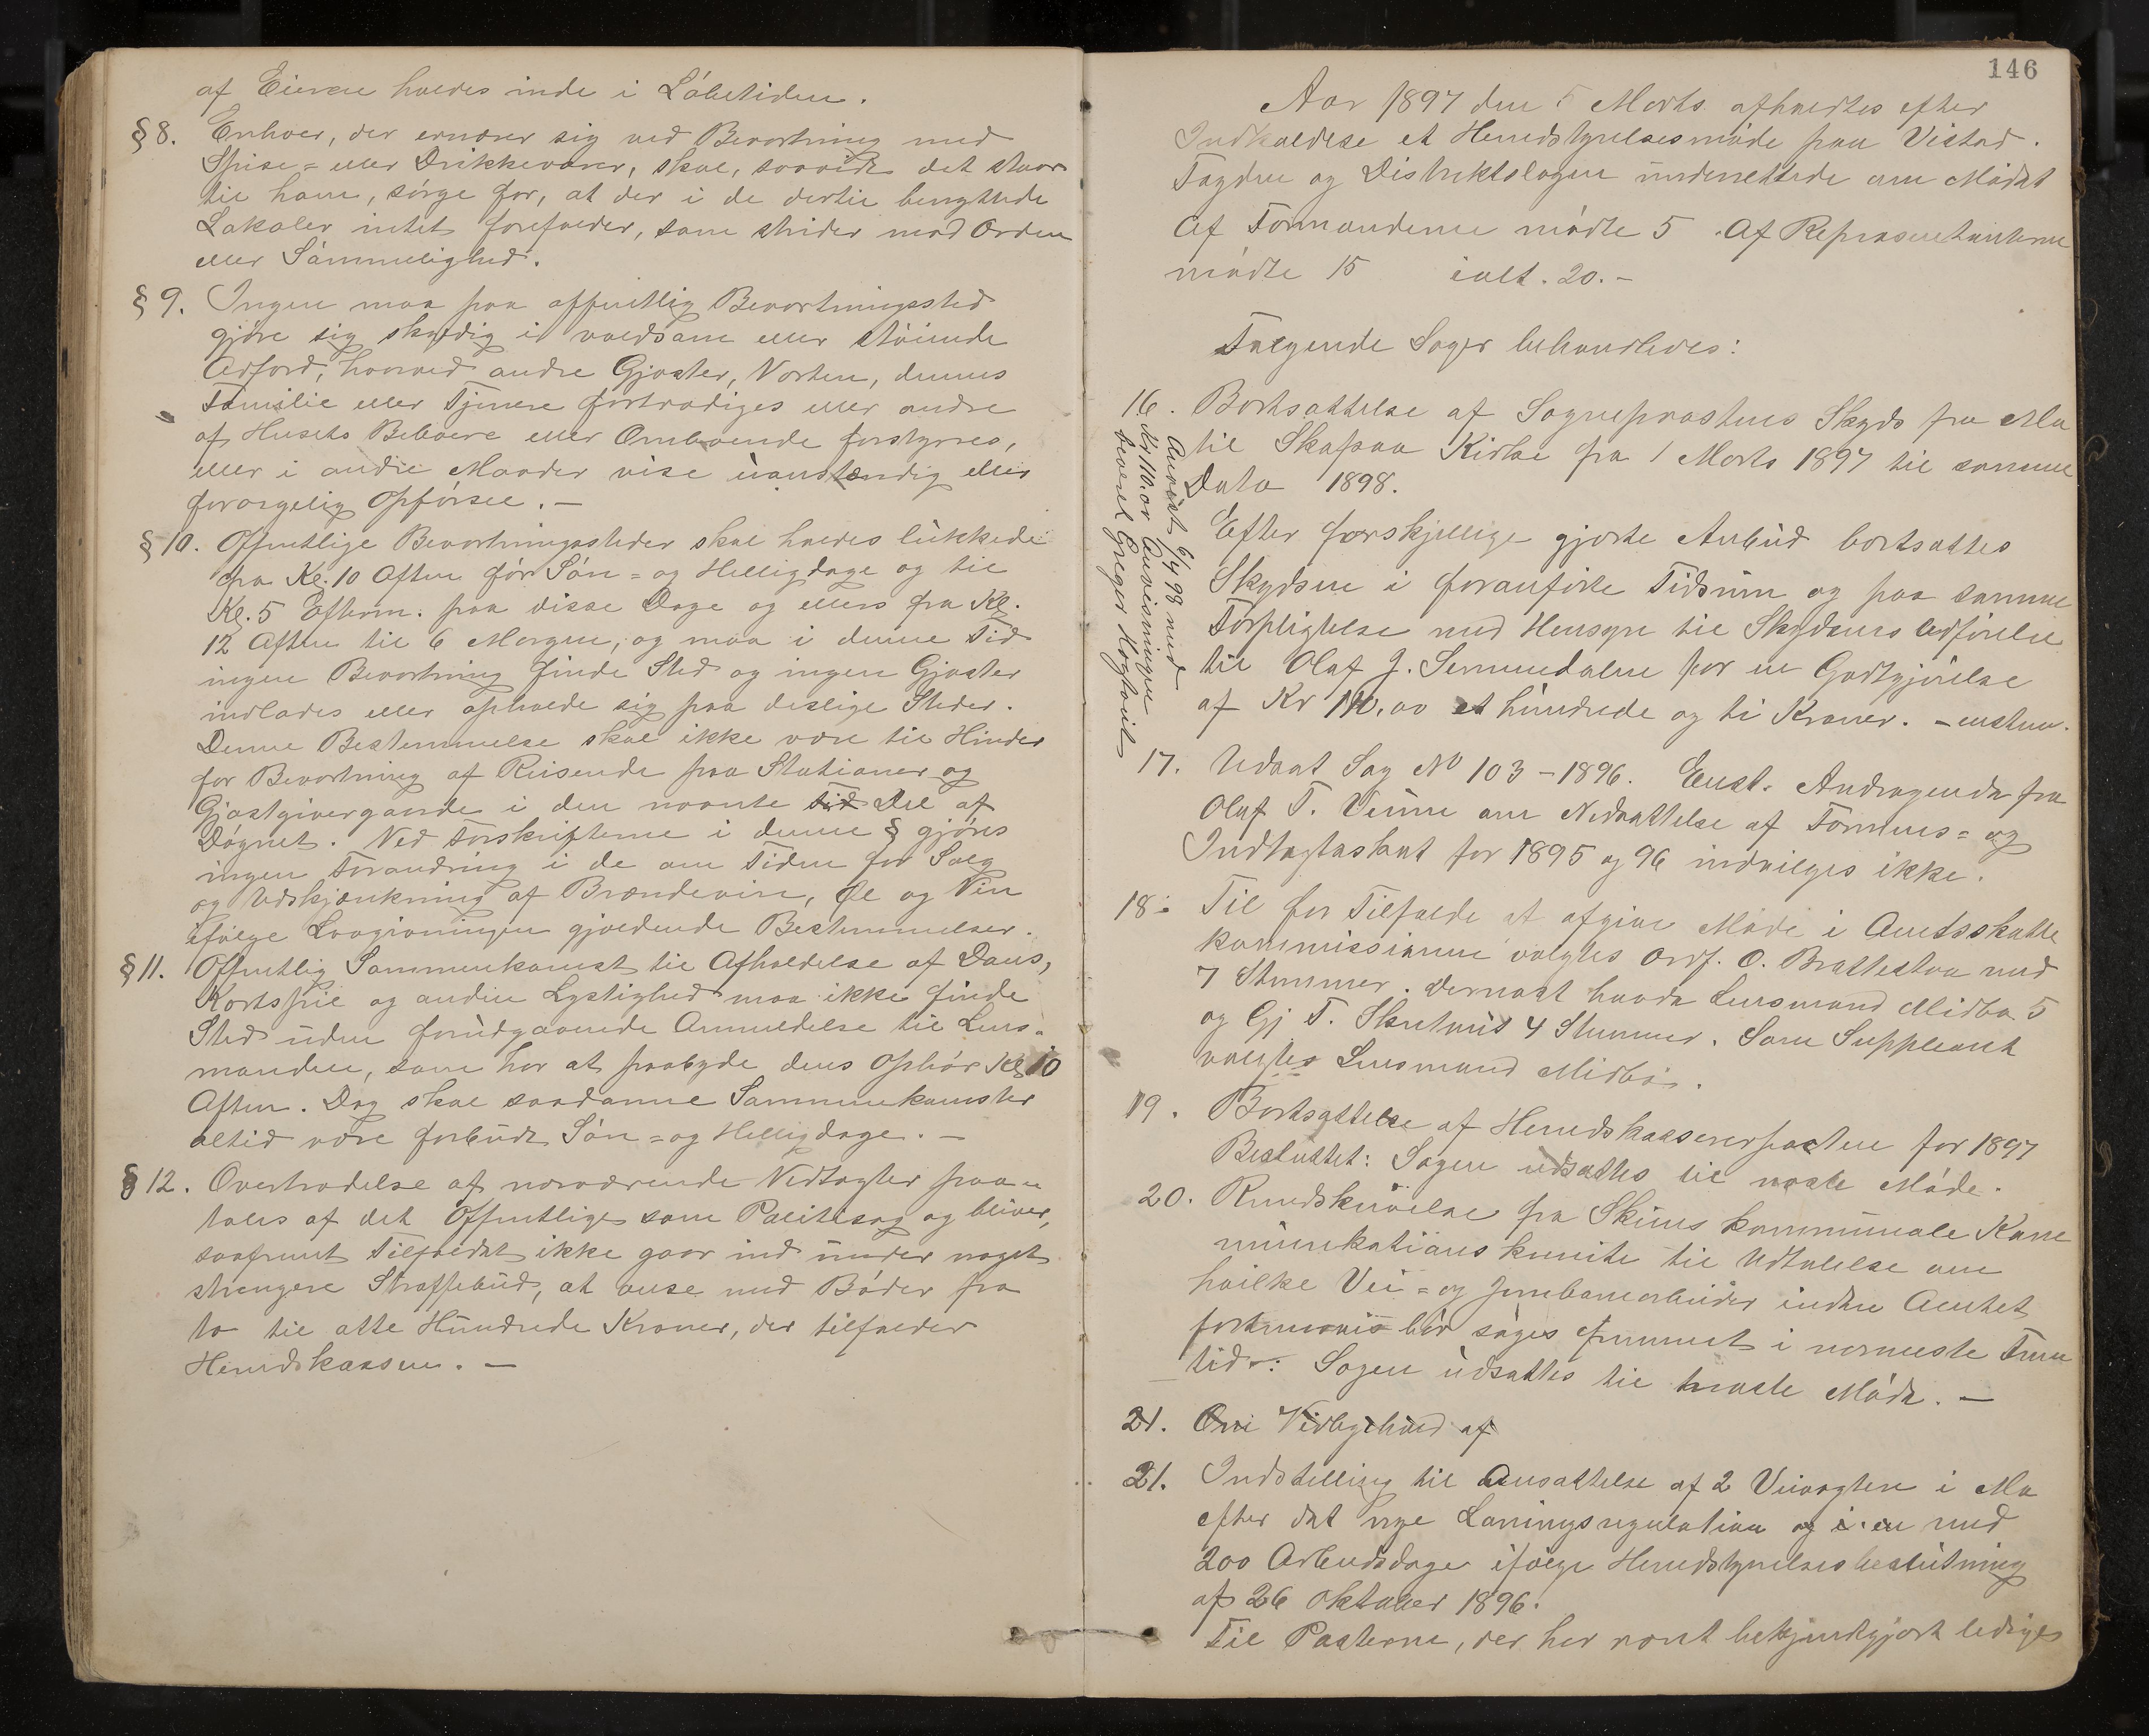 af Eieren holdes inde i Löbetiden.
§ 8. Enhver, der ernærer sig ved Beværtning med
Spise- eller Drikkevarer, skal, saavidt det staar
til ham, sörge for, at der i de dertil benyttede
Lokaler intet forefalder, som strider mod Orden
eller Sömmelighed.
§ 9. Ingen maa paa offentlig Beværtningssted
gjöre sig skyldig i voldsom eller stöiende
Adfærd, hvorved andre Gjæster, Værten, dennes
Familie eller Tjenere fortrædiges eller andre
af Husets Beboere eller Omboende forstyrres,
eller i andre Maader vise uanstændig eller
forargelig Opförsel. —
§ 10. Offentlige Beværtningssteder skal holdes lukkede
fra Kl. 10 Aften för Sön- og Helligdage og til
Kl. 5 Efterm. paa disse Dage og ellers fra Kl.
12 Aften til 6 Morgen, og maa i denne Tid
ingen Beværtning finde Sted og ingen Gjæster
indlades eller opholde sig paa deslige Steder.
Denne Bestemmelse skal ikke være til Hinder
for Beværtning af Reisende paa Stationer og
Gjæstgivergaarde i den nævnte Tid Del af
Dögnet. Ved Forskrifterne i denne § gjöres
ingen Forandring i de om Tiden for Salg
og Udskjænkning af Brændevin, Öl og Vin
ifölge Lovgivningen gjældende Bestemmelser.
§ 11. Offentlig Sammenkomst til Afholdelse af Dans,
Kortspil og anden Lystighed maa ikke finde
Sted uden forudgaaende Anmeldelse til Lens-
manden, som har at paabyde dens Ophör Kl 10
Aften. Dog skal saadanne Sammenkomster
altid være forbudt Sön- og Helligdage. —
§ 12. Overtrædelse af nærværende Vedtægter paa-
tales af det Offentlige som Politisag og bliver,
saafremt Tilfældet ikke gaar ind under noget
strengere Straffebud, at anse med Böder fra
to til otte Hundrede Kroner, der tilfalder
Herredskassen. —
146
Aar 1897 den 5 Marts afholdtes efter
Indkaldelse et Herredstyrelsesmöde paa Vistad.
Fogden og Distriktslægen underrettede om Mödet
Af Formændene mödte 5. Af Repræsentanterne
mödte 15 ialt. 20. —
Fölgende Sager behandledes:
16. Bortsættelse af Sogneprestens Skyds fra Mo
til Skafsaa Kirke fra 1 Marts 1897 til samme
Dato 1898.
Efter forskjellige gjorte Anbud bortsattes
Skydsen i foranförte Tidsrum og paa samme
Forpligtelse med Hensyn til Skydsens Udförelse
til Olaf J. Semmendalen for en Godtgjörelse
af Kr 110,00 et hundrede og ti Kroner. - enstem.
Anvist 6/4 98 med
Kr 110.00 Anvisningen
17. Udsat Sag No 103 - 1896. Enst. Andragende fra
Olaf T. Vinne om Nedsættelse af Formues- og
Indtægtsskat for 1895 og 96 indvilges ikke.
18. Til for Tilfælde at afgive Möde i Amtsskatte
kommissionen valgtes Ordf. O. Brattestaa med
7 Stemmer. Dernæst havde Lensmand Midbö 5
og Gj T. 4 Stemmer. Som Suppleant
valgtes Lensmand Midbö.
19. Bortsættelse af Herredskassererposten for 1897
Besluttet: Sagen udsattes til næste Möde.
20. Rundskrivelse fra Skiens kommunale Kom
munikationskomite til Udtalelse om
hvilke Vei- og Jernbanearbeider inden Amtet
fortrinsvis bör söges fremmet i nærmeste Frem
tid -: Sagen udsattes til næste Möde. —
21. Om Vedbyehold af
21. Indstilling til Ansættelse af 2 Veivogtere i Mo
efter det nye Lönningsregulativ og i. en med
200 Arbeidsdage ifölge Herredstyrelsesbeslutning
af 26 Oktober 1896.
Til Posterne, der har været bekjendtgjort ledige